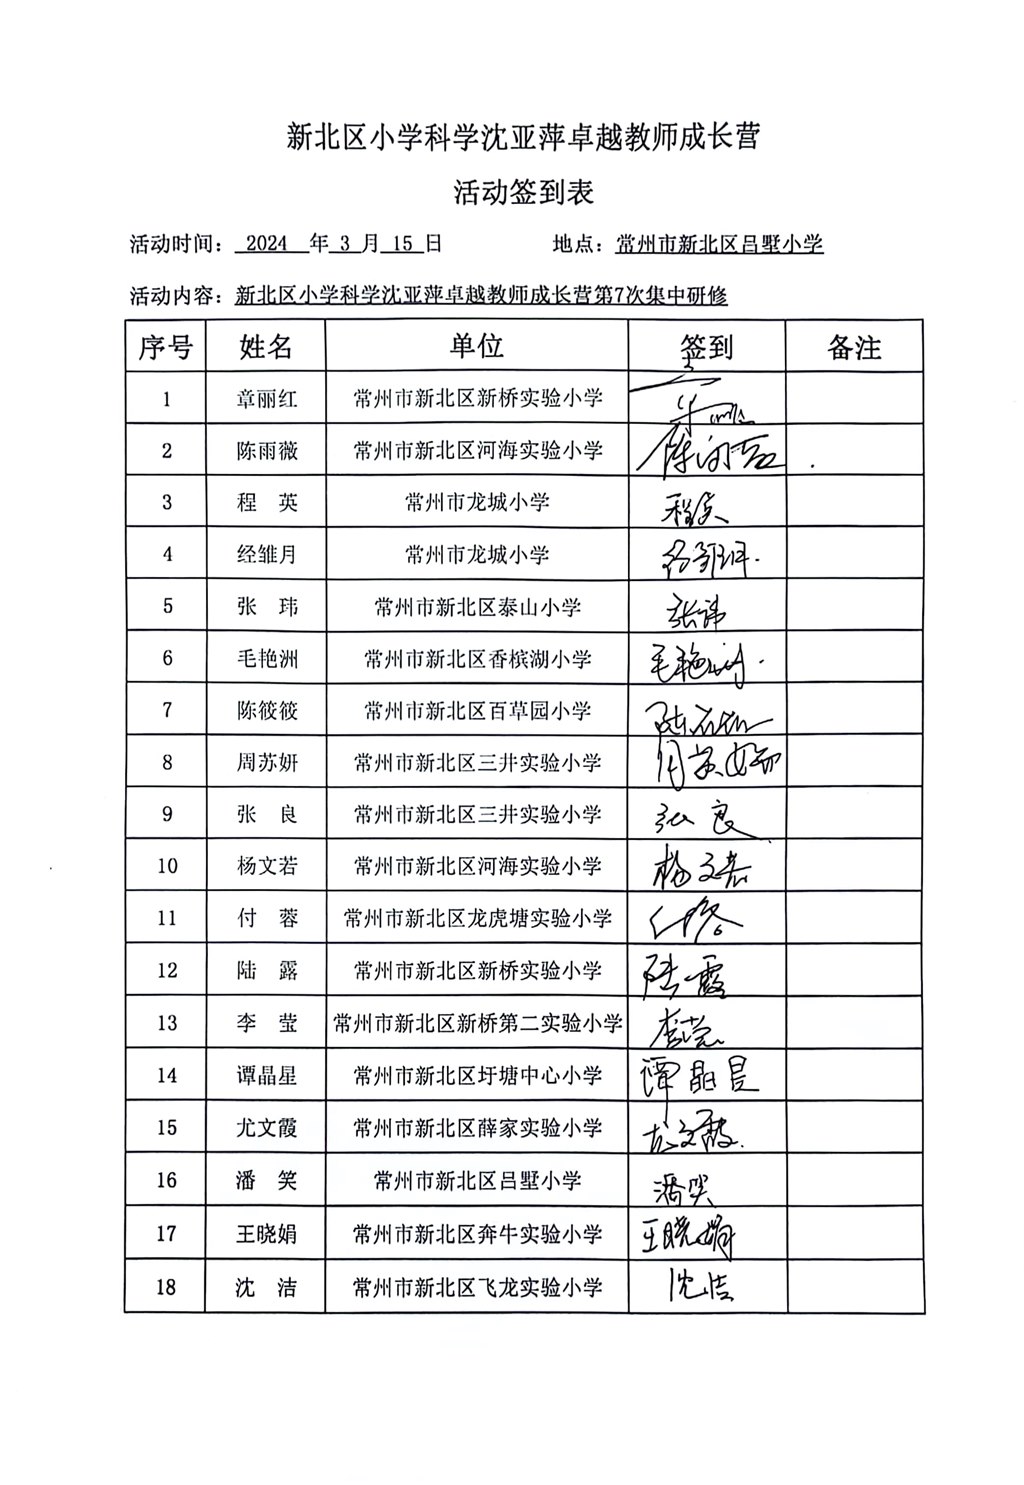 新北区小学科学沈亚萍卓越教师成长营
活动签到表
活动时间： 2024 年 3 月 15 日 地点：常州市新北区吕墅小学
活动内容：新北区小学科学沈亚萍卓越教师成长营第7次集中研修
序号 姓名 单位 签到 备注
1 章丽红 常州市新北区新桥实验小学
2 陈雨薇 常州市新北区河海实验小学 陈雨薇
3 程 英 常州市龙城小学 程英
4 经雏月 常州市龙城小学
5 张 玮 常州市新北区泰山小学 张玮
6 毛艳洲 常州市新北区香槟湖小学 毛艳洲
7 陈筱筱 常州市新北区百草园小学
8 周苏妍 常州市新北区三井实验小学 周苏妍
9 张 良 常州市新北区三井实验小学 张良
10 杨文若 常州市新北区河海实验小学 杨文若
11 付 蓉 常州市新北区龙虎塘实验小学 付蓉
12 陆 露 常州市新北区新桥实验小学 陆露
13 李 莹 常州市新北区新桥第二实验小学 李莹
14 谭晶星 常州市新北区圩塘中心小学 谭晶星
15 尤文霞 常州市新北区薛家实验小学 尤文霞
16 潘 笑 常州市新北区吕墅小学 潘笑
17 王晓娟 常州市新北区奔牛实验小学 王晓娟
18 沈 洁 常州市新北区飞龙实验小学 沈洁